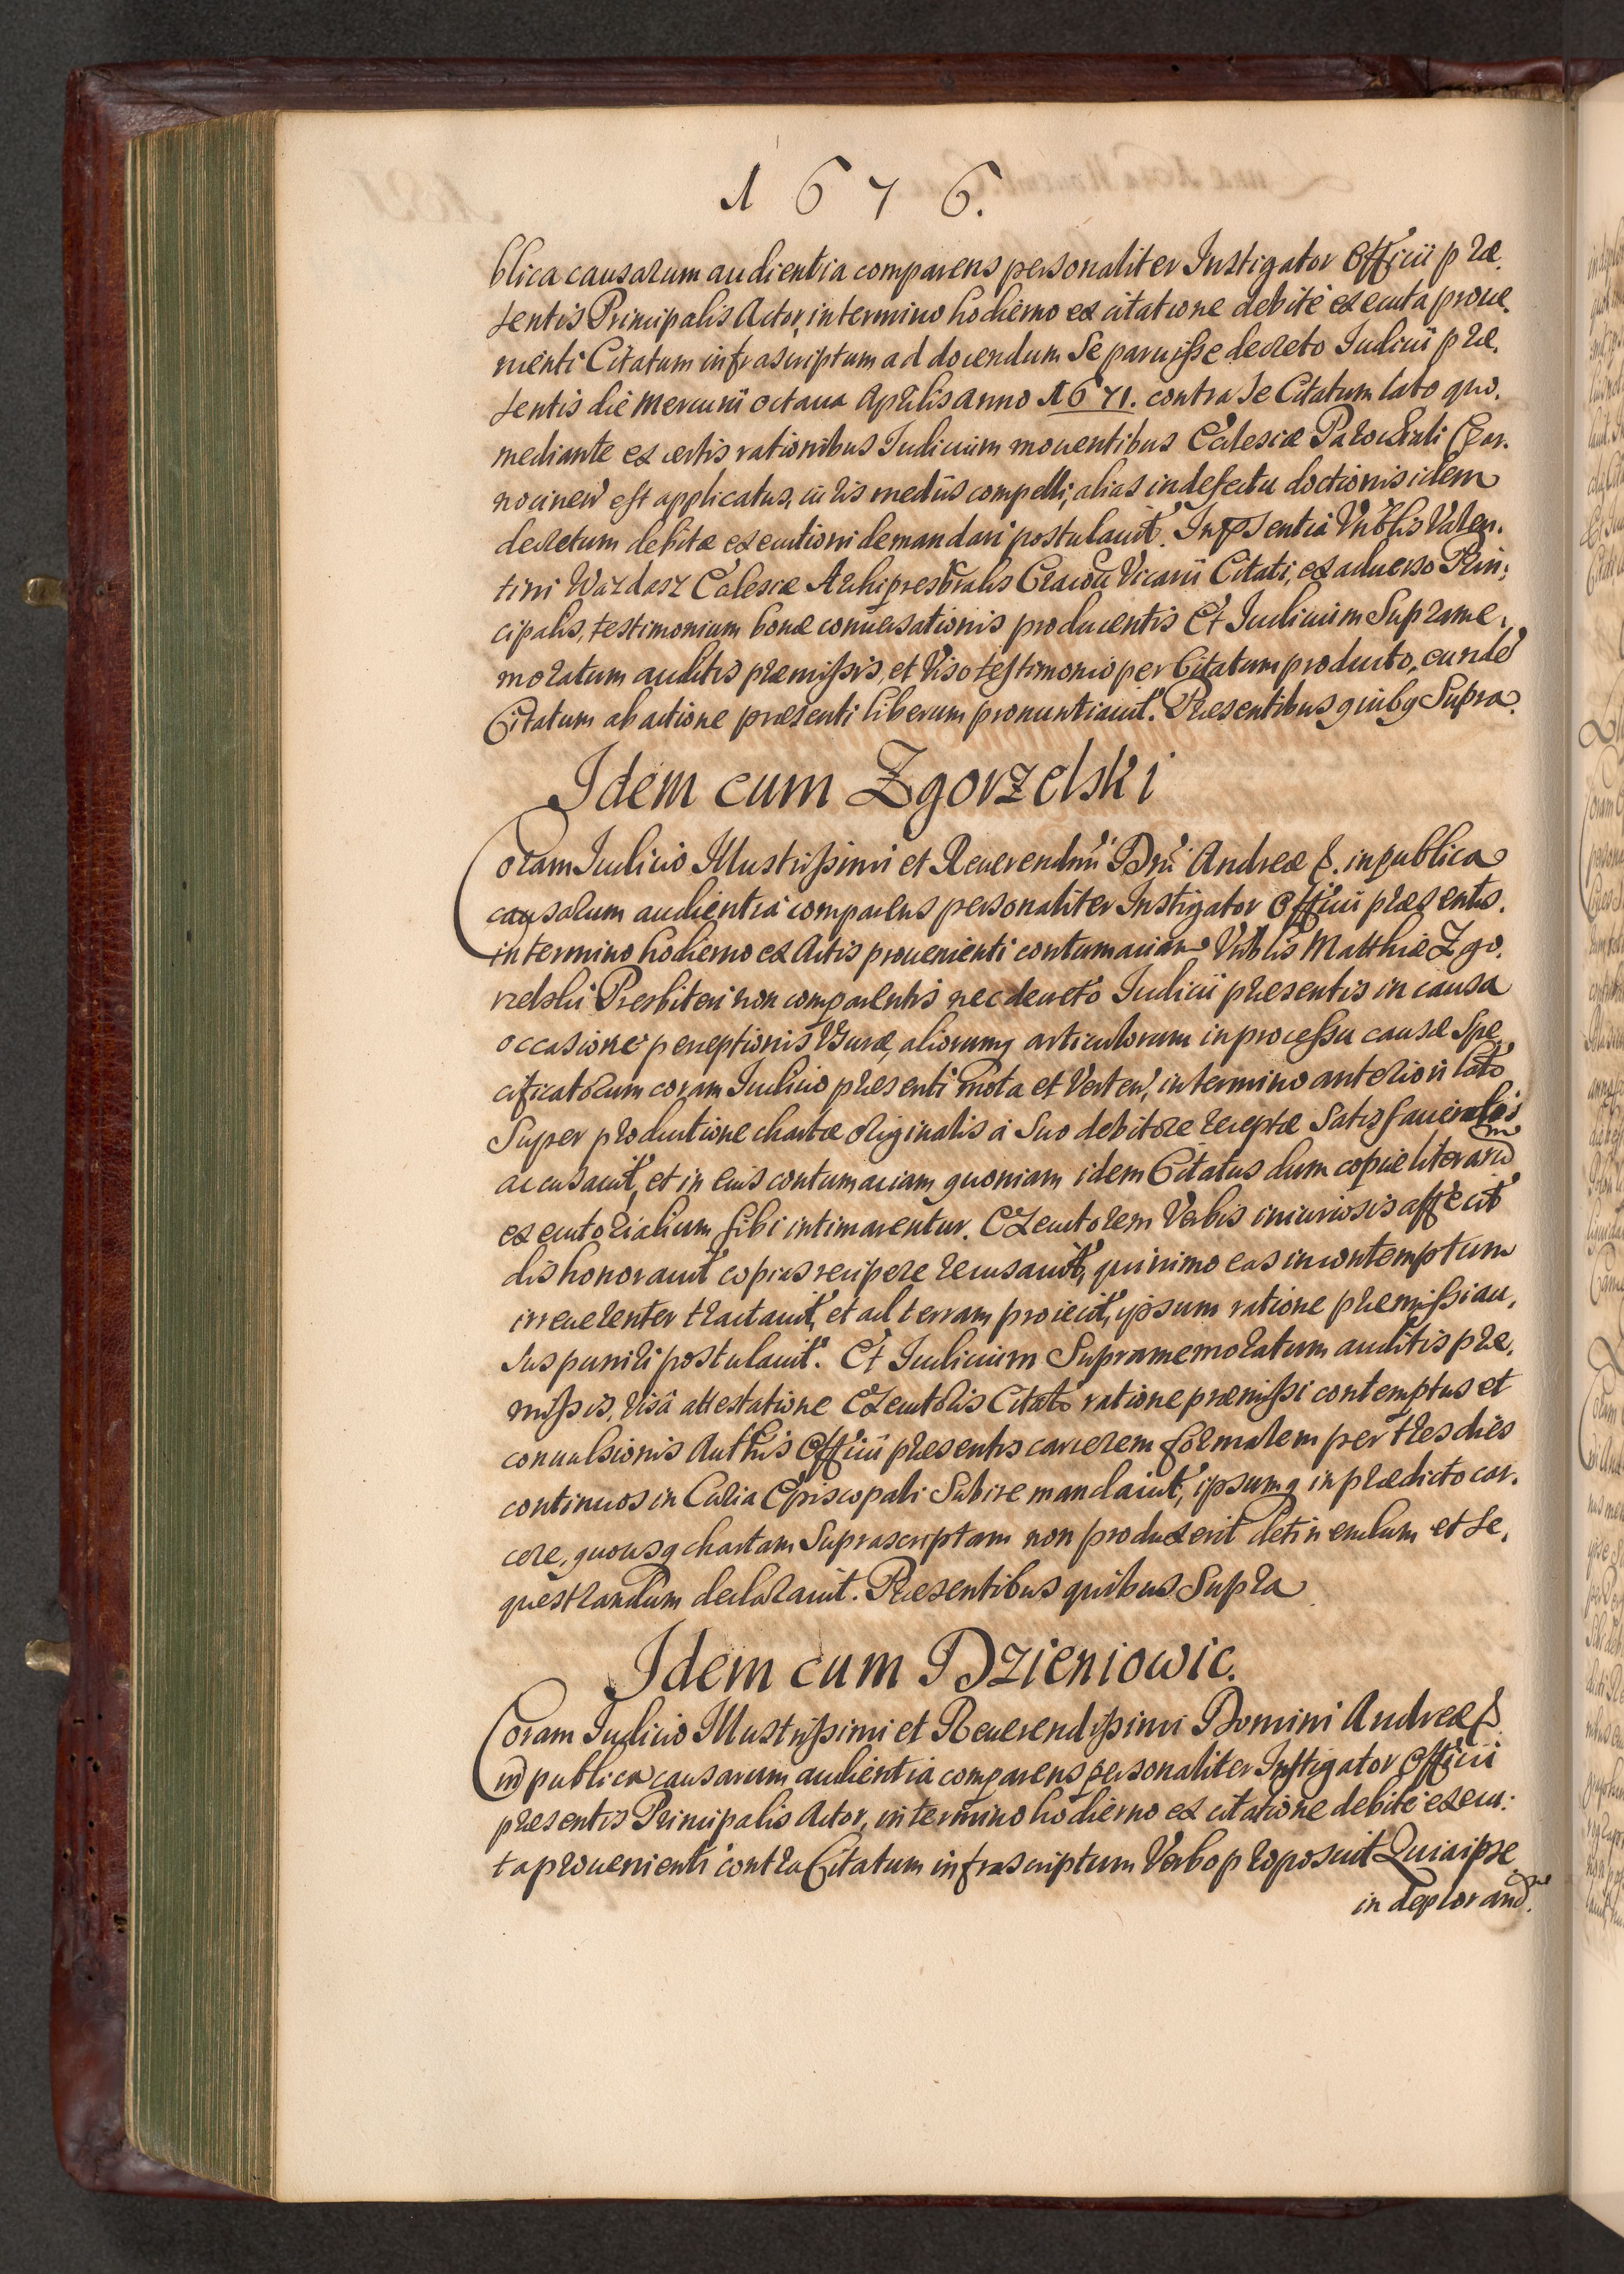 1676.
blica causarum audientia comparens personaliter Instigator Officii præ.
sentis Principalis Actor, in termino hodierno ex citatione debitè executa proue.
nienti Citatum infrascriptum ad docendum Se paruisse decreto Iudicii præ.
sentis die Mercurii octaua Aprilis Anno 1671. contra Se Citatum lato quo.
mediante ex certis rationibus Iudicium mouentibus Ecclesiæ Parochiali Czar.
nocinen est applicatus, iuris mediis compelli, alias in defectu doctionis idem
decretum debitæ executioni demandari postulauit. In pñsentia Vñblis Valen.
tini Wardasz Ecclesiæ Archipresbralis Cracou Vicarii Citati, ex aduerso Prin:
cipalis, testimonium bonæ conuersationis producentis Et Iudicium Suprame.
moratum auditis præmissis, et Viso testimonio per Citatum producto, eundẽ
Citatum ab actione præsenti liberum pronuntiauit. Præsentibus quibq Supra.
Idem cum Zgorzelski
Coram Iudicio Illustrissimi et Reuerendmi Dni Andreæ &. in publica
causarum audientia comparens personaliter Instigator Officii præsentis.
in termino hodierno ex Actis prouenienti contumaciam Vñblis Matthiæ Zgo.
rzelski Presbiteri non comparentis nec decreto Iudicii præsentis in causa
occasione perceptionis Vsuræ, aliorumq articulorum in processu causæ Spe
cificatorum coram Iudicio præsenti mota et Verten, in termino anteriori lato
Super productione chartæ originalis à Suo debitore receptæ Satisfacientis
accusauit, et in eius contumaciam quoniam idem Citatus dum copiæ literarum
executorialium sibi intimarentur. Executorem Verbis iniuriosis affecit
dishonorauit copias recipere recusauit, quinimo eas in contemptum
irreuerenter tractauit, et ad terram proiecit, ipsum ratione præmissi au.
sus puniri postulauit. Et Iudicium Supramemoratum auditis præ.
missis, visâ attestatione Executoris Citato ratione præmissi contemptus et
conuulsionis Authis Officii præsentis carcerem formalem per tres dies
continuos in Curia Episcopali Subire mandauit, ipsumq in prædicto car.
cere, quousq chartam Suprascriptam non produxerit detinendum et Se.
questrandum declarauit. Præsentibus quibus Supra
Idem cum Dzieniowic.
Coram Iudicio Illustrissimi et Reuerendissimi Domini Andreæ &
in publica causarum audientia comparens personaliter Instigator Officii
præsentis Principalis Actor, in termino hodierno ex citatione debitè execu:
ta prouenienti contra Citatum infrascriptum Verbo proposuit Quia ipse
in deplorand.